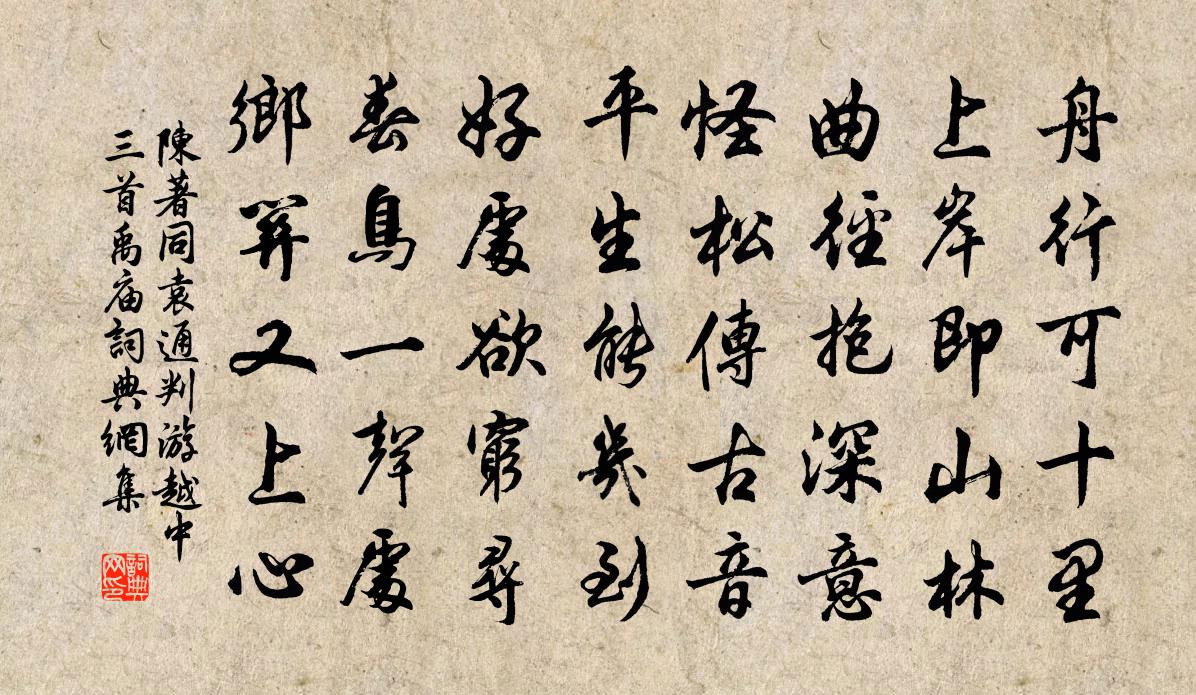 舟行可十里
上岸即山林
曲徑抱深意
怪松傳古音
平生能幾到
好處欲窮尋
春鳥一聲處
鄉關又上心
陳著同袁通判游越中
三首禹庙詞典網集
詞典网印